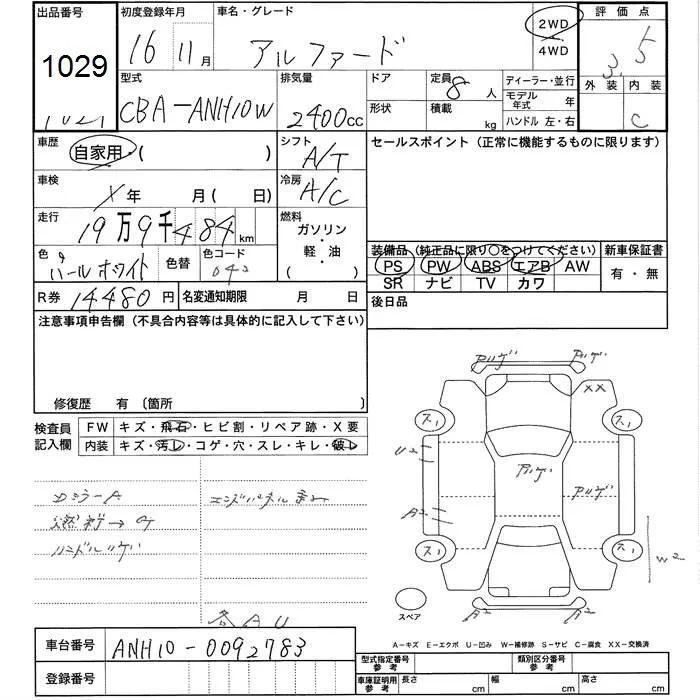 出品番号 初度登録年月 車名・グレード 2WD 評価点
1029 16 11月 アルファード 4WD 3.5
外装 内装
型式 排気量 ドア 定員 8人 ディーラー・並行 C
CBA-ANH10W 2400cc 形状 積載 kg モデル年式 年
ハンドル 左・右
車歴 自家用・( ) シフト A/T セールスポイント (正常に機能するものに限ります)
車検 X年 月( 日) 冷房 A/C
走行 19万9千484km 燃料 ガソリン・軽・油 ( )
色 パールホワイト 色替 色コード 042
装備品 (純正品に限り○をつけてください) 新車保証書
PS PW ABS エアB AW 有・無
SR ナビ TV カワ
R券 14480円 名変通知期限 月 日 後日品
注意事項申告欄 (不具合内容等は具体的に記入して下さい)
修復歴 有 〔箇所
検査員記入欄 FW キズ・飛石・ヒビ割・リペア跡・X要
内装 キズ・汚レ・コゲ・穴・スレ・キレ・破レ
ハンドルハゲ
各AU
スペア
A−キズ E−エクボ U−凹み W−補修跡 S−サビ C−腐食 XX−交換済
車台番号 ANH10-0092783
型式指定番号 参考 類別区分番号 参考
登録番号 車庫証明用参考 長さ cm 幅 cm 高さ cm